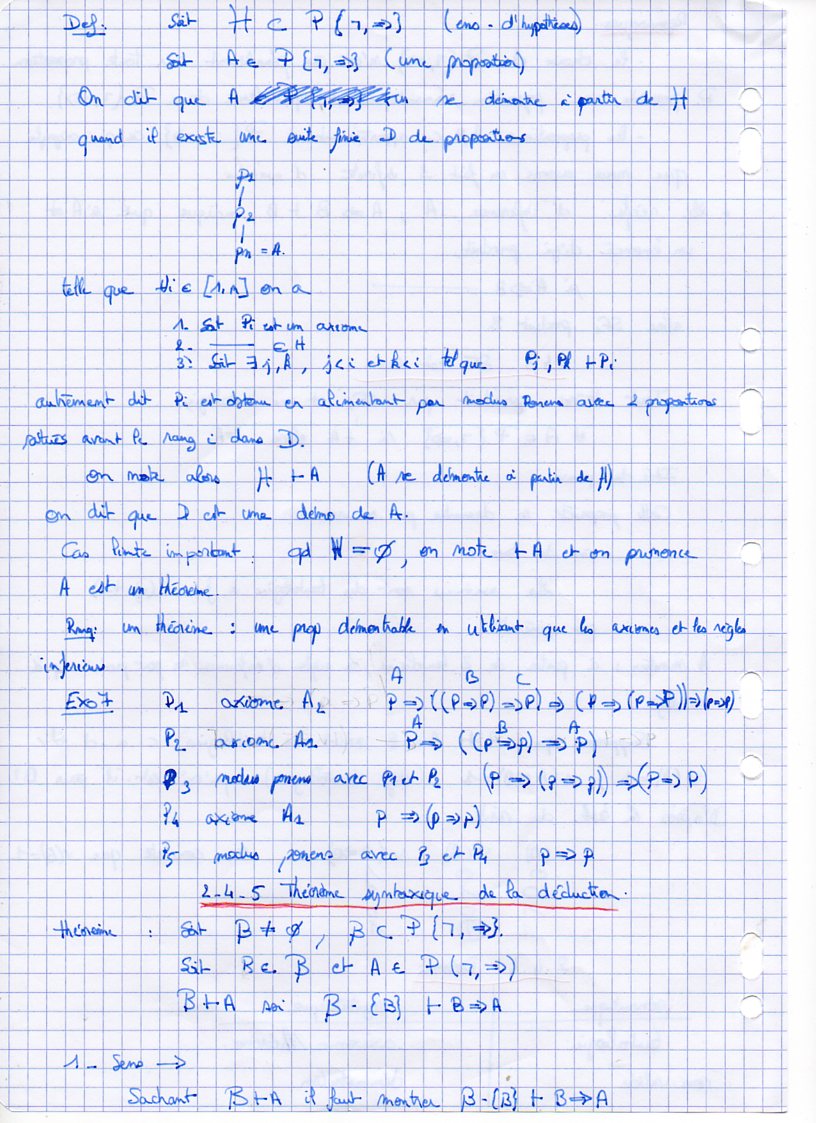 Def: Soit H ⊂ P{¬,⇒} (ens. d'hypothèses)
Soit A ∈ P{¬,⇒} (une proposition)
On dit que A se démontre à partir de H
quand il existe une suite finie D de propositions
p1
|
p2
|
pn = A.
telle que ∀i ∈ [1,n] on a
1. Soit Pi est un axiome
2. ——— ∈ H
3: Soit ∃ j,k, j<i et k<i tel que Pj, Pk ⊢ Pi
autrement dit Pi est obtenu en alimentant par modus ponens avec 2 propositions
situés avant le rang i dans D.
on note alors H ⊢ A (A se démontre à partir de H)
on dit que D est une démo de A.
Cas limite important : qd H = ∅, on note ⊢ A et on prononce
A est un théorème.
Rmq: un théorème : une prop démontrable en utilisant que les axiomes et les règles
inferieurs.
A B C
Exo7 P1 axiome A2 P ⇒ ((P ⇒ P) ⇒ P) ⇒ (P ⇒ (P ⇒ P)) ⇒ (P ⇒ P)
A B A
P2 axiome A1 P ⇒ ((p ⇒ p) ⇒ P)
P3 modus ponens avec P1 et P2 (P ⇒ (p ⇒ p)) ⇒ (P ⇒ P)
P4 axiome A1 P ⇒ (p ⇒ p)
P5 modus ponens avec P3 et P4 p ⇒ p
2-4-5 Théorème syntaxique de la déduction.
théorème : Soit B ≠ ∅, B ⊂ P{¬,⇒}.
Soit B ∈ B et A ∈ P(¬,⇒)
B ⊢ A ssi B - {B} ⊢ B ⇒ A
1 - Sens →
Sachant B ⊢ A il faut montrer B - {B} ⊢ B ⇒ A